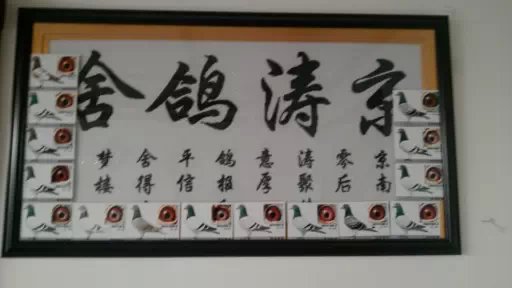 京涛鸽舍
京南
零后
涛聚
意厚
鸽
平信
舍得
梦楼